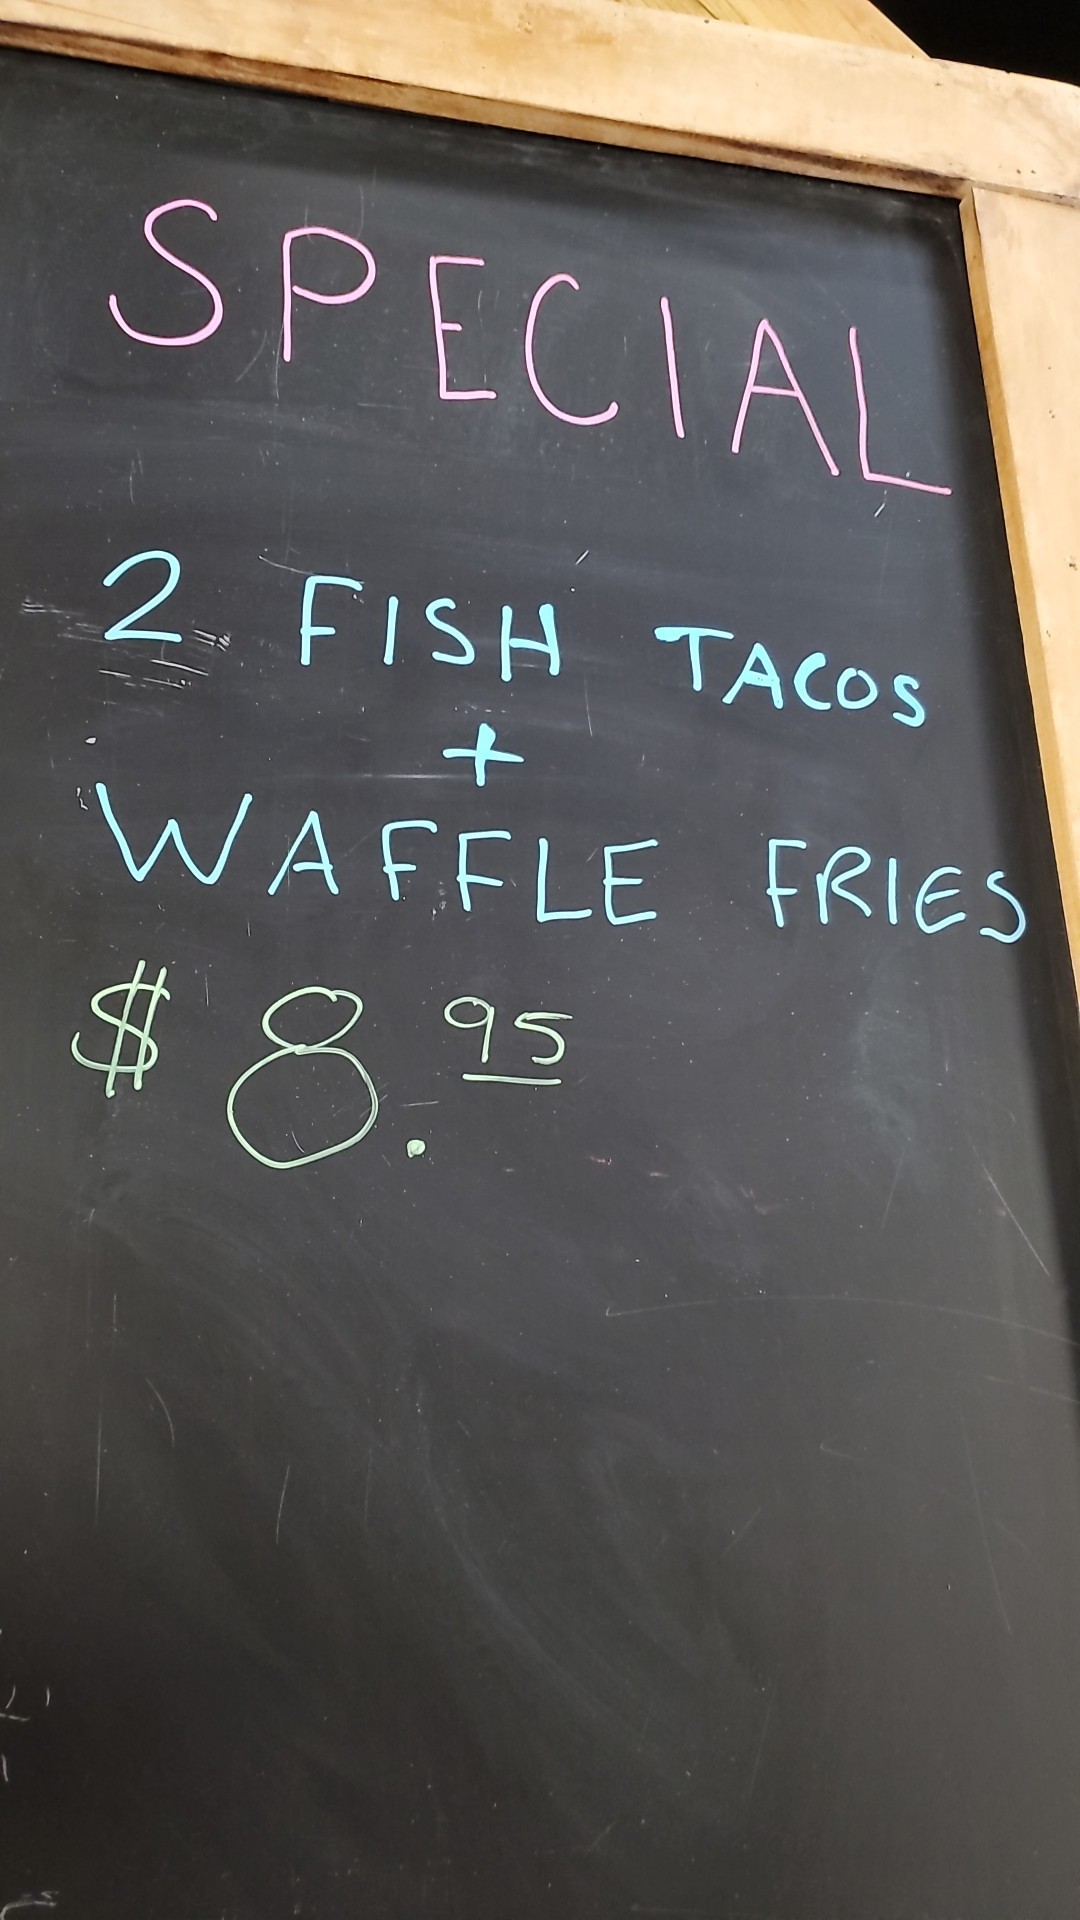 SPECIAL
2 FISH TACOS
+
WAFFLE FRIES
$ 8.95